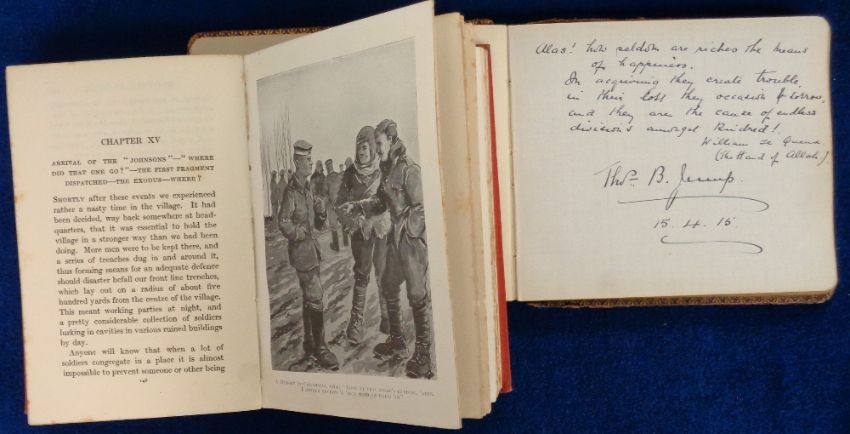 CHAPTER XV
ARRIVAL OF THE "JOHNSONS"—"WHERE
DID THAT ONE GO?"—THE FIRST FRAGMENT
DISPATCHED—THE EXODUS—WHERE?
SHORTLY after these events we experienced
rather a nasty time in the village. It had
been decided, way back somewhere at head-
quarters, that it was essential to hold the
village in a stronger way than we had been
doing. More men were to be kept there, and
a series of trenches dug in and around it,
thus forming means for an adequate defence
should disaster befall our front line trenches,
which lay out on a radius of about five
hundred yards from the centre of the village.
This meant working parties at night, and
a pretty considerable collection of soldiers
lurking in cavities in various ruined buildings
by day.
Anyone will know that when a lot of
soldiers congregate in a place it is almost
impossible to prevent someone or other being
146
Alas! how seldom are riches the means
of happiness.
In acquiring they create trouble,
in their loss they occasion sorrow,
and they are the cause of endless
divisions amongst Kindred!.
William le Queux
(The Hand of Allah).
Thos. B. Jessup.
15.4.15